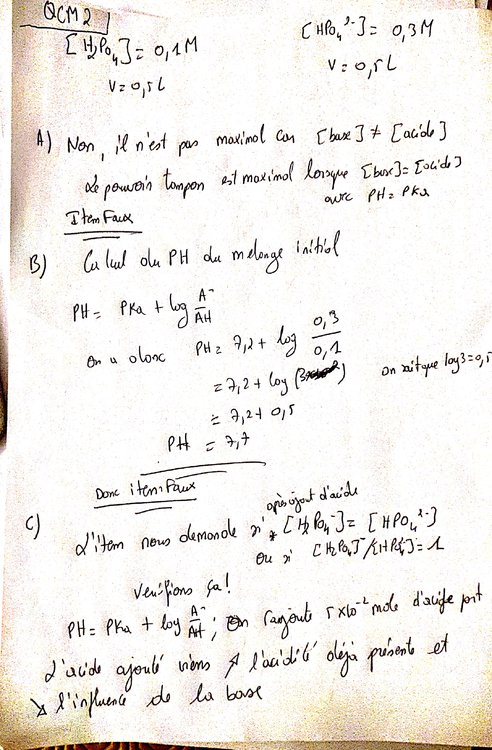 QCM2
[H2PO4-] = 0,1M
[HPO4 2-] = 0,3M
V = 0,5L
V = 0,5L
A) Non, il n'est pas maximal car [base] ≠ [acide]
Le pouvoir tampon est maximal lorsque [base] = [acide]
avec PH = PKa
Item Faux
B) Calcul du PH du mélange initial
PH = PKa + log A-/AH
On a donc PH = 7,2 + log 0,3/0,1
= 7,2 + log (3) on sait que log3 = 0,5
= 7,2 + 0,5
PH = 7,7
Donc item Faux
après ajout d'acide
C) L'item nous demande si [H2PO4-] = [HPO4 2-]
Ou si [H2PO4]-/[HPO4 2-] = 1
Vérifions ça!
PH = PKa + log A-/AH ; On rajoute 5x10-2 mole d'acide fort
L'acide ajouté viens ↗ l'acidité déjà présente et
↘ l'influence de la base